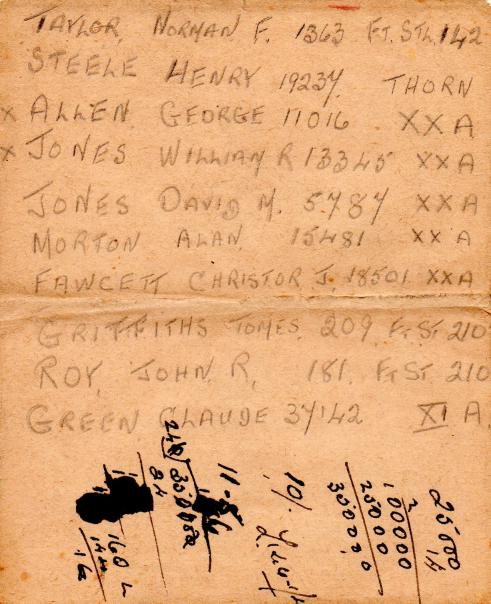 TAYLOR, NORMAN F. 1363 FT. STL. 142
STEELE HENRY 19237. THORN
x ALLEN GEORGE 11016 XXA
x JONES WILLIAM R 13345 XXA
JONES DAVID M. 5787 XXA
MORTON ALAN. 15481 XX A
FAWCETT CHRISTOR J. 18501 XXA
GRIFFITHS TOMES. 209. Ft St. 210
ROY, JOHN R, 181. Ft ST 210
GREEN CLAUDE 37142 XI A.
25000
14
2
100000
25000
350000
10/.
11.